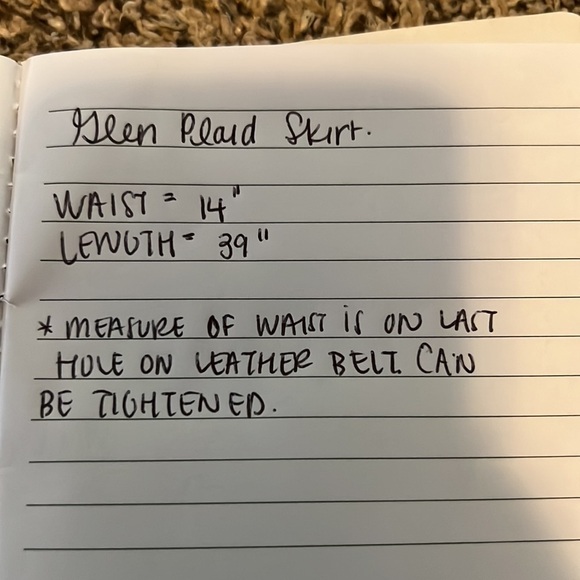 Glen Plaid Skirt.
WAIST = 14"
LENGTH = 39"
* MEASURE OF WAIST IS ON LAST
HOLE ON LEATHER BELT. CAN
BE TIGHTENED.